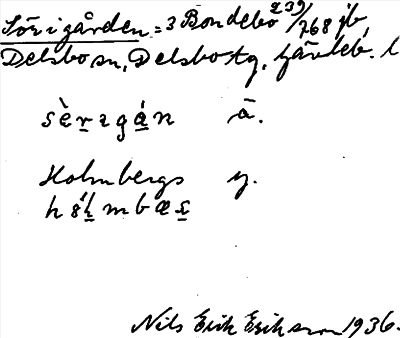 Sörigården = 3 Bondebo 2 39/768 jb
Delsbo sn, Delsbo tg. Gävleb. l
sèrıgán ä.
Holmbergs y.
hólmbæs
Nils Erik Eriksson 1936.